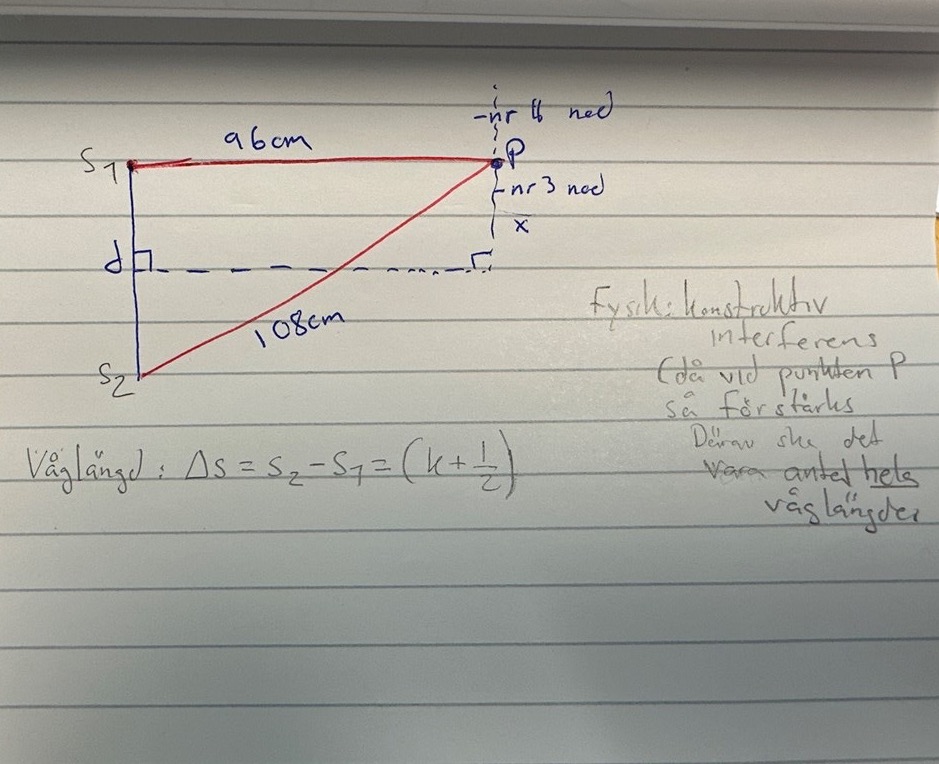 -nr 4 nod
96cm
S1
P
-nr 3 nod
x
d
108cm
S2
Fysik: konstruktiv
interferens
(då vid punkten P
så förstärks
Därav ska det
vara antal hela
våglängder
Våglängd: Δs = s2 - s1 = (k + 1/2)